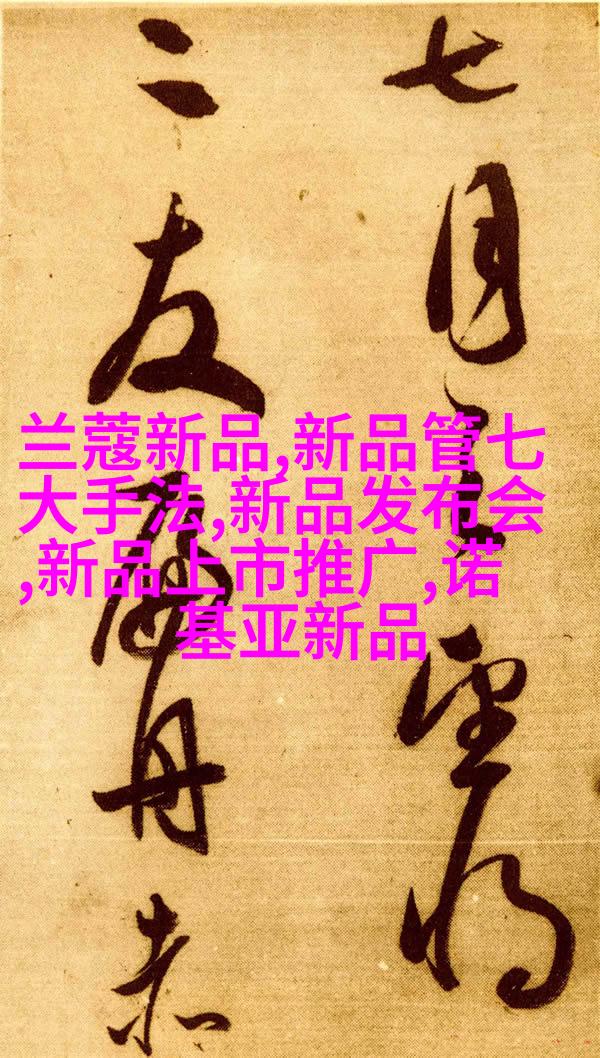 七月之望将
二友舟赤
兰蔻新品,新品管七
大手法,新品发布会
,新品上市推广,诺
基亚新品